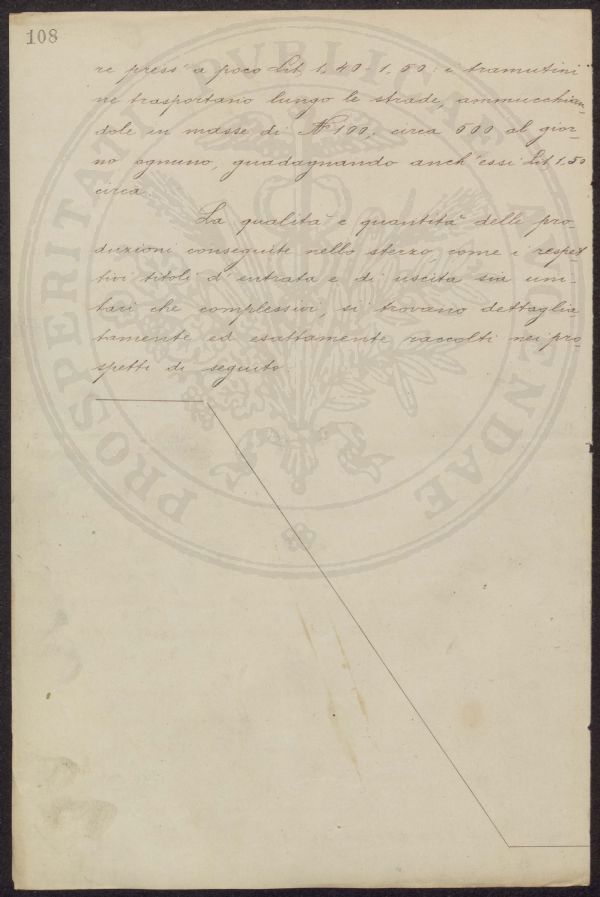 108
re press' a poco Lit. 1,40-1,50: i tramutini
ne trasportano lungo le strade, ammucchian-
dole in masse di N° 100; circa 500 al gior-
no ognuno, guadagnando anch'essi Lit. 1,50
circa.
La qualità e quantità delle pro-
duzioni conseguite nello sterzo come i respet
tivi titoli d'entrata e di uscita sia uni-
tari che complessivi, si trovano dettaglia
tamente ed esattamente raccolti nei pro-
spetti di seguito.
PROSPERITATI PVBLICAE AVGENDAE